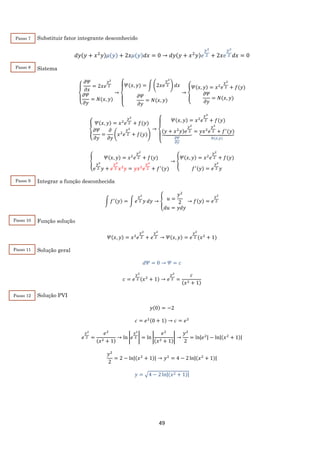 Passo 7
Substituir fator integrante desconhecido
dy(y + x²y)μ(y) + 2xμ(y)dx = 0 → dy(y + x²y)e^{y²/2} + 2xe^{y²/2} dx = 0
Passo 8
Sistema
{∂Ψ/∂x = 2xe^{y²/2} ; ∂Ψ/∂y = N(x,y) → {Ψ(x,y) = ∫(2xe^{y²/2}) dx ; ∂Ψ/∂y = N(x,y) → {Ψ(x,y) = x²e^{y²/2} + f(y) ; ∂Ψ/∂y = N(x,y)
{Ψ(x,y) = x²e^{y²/2} + f(y) ; ∂Ψ/∂y = ∂/∂y (x²e^{y²/2} + f(y)) → {Ψ(x,y) = x²e^{y²/2} + f(y) ; (y + x²y)e^{y²/2} = yx²e^{y²/2} + f'(y) ∂Ψ/∂y N(x,y)
{Ψ(x,y) = x²e^{y²/2} + f(y) ; e^{y²/2} y + e^{y²/2} x²y = yx²e^{y²/2} + f'(y) → {Ψ(x,y) = x²e^{y²/2} + f(y) ; f'(y) = e^{y²/2} y
Passo 9
Integrar a função desconhecida
∫ f'(y) = ∫ e^{y²/2} y dy → {u = y²/2 ; du = ydy → f(y) = e^{y²/2}
Passo 10
Função solução
Ψ(x,y) = x²e^{y²/2} + e^{y²/2} → Ψ(x,y) = e^{y²/2}(x² + 1)
Passo 11
Solução geral
dΨ = 0 → Ψ = c
c = e^{y²/2}(x² + 1) → e^{y²/2} = c/(x² + 1)
Passo 12
Solução PVI
y(0) = −2
c = e²(0 + 1) → c = e²
e^{y²/2} = e²/(x² + 1) → ln|e^{y²/2}| = ln|e²/(x² + 1)| → y²/2 = ln|e²| − ln|(x² + 1)|
y²/2 = 2 − ln|(x² + 1)| → y² = 4 − 2 ln|(x² + 1)|
y = √(4 − 2 ln|(x² + 1)|)
49